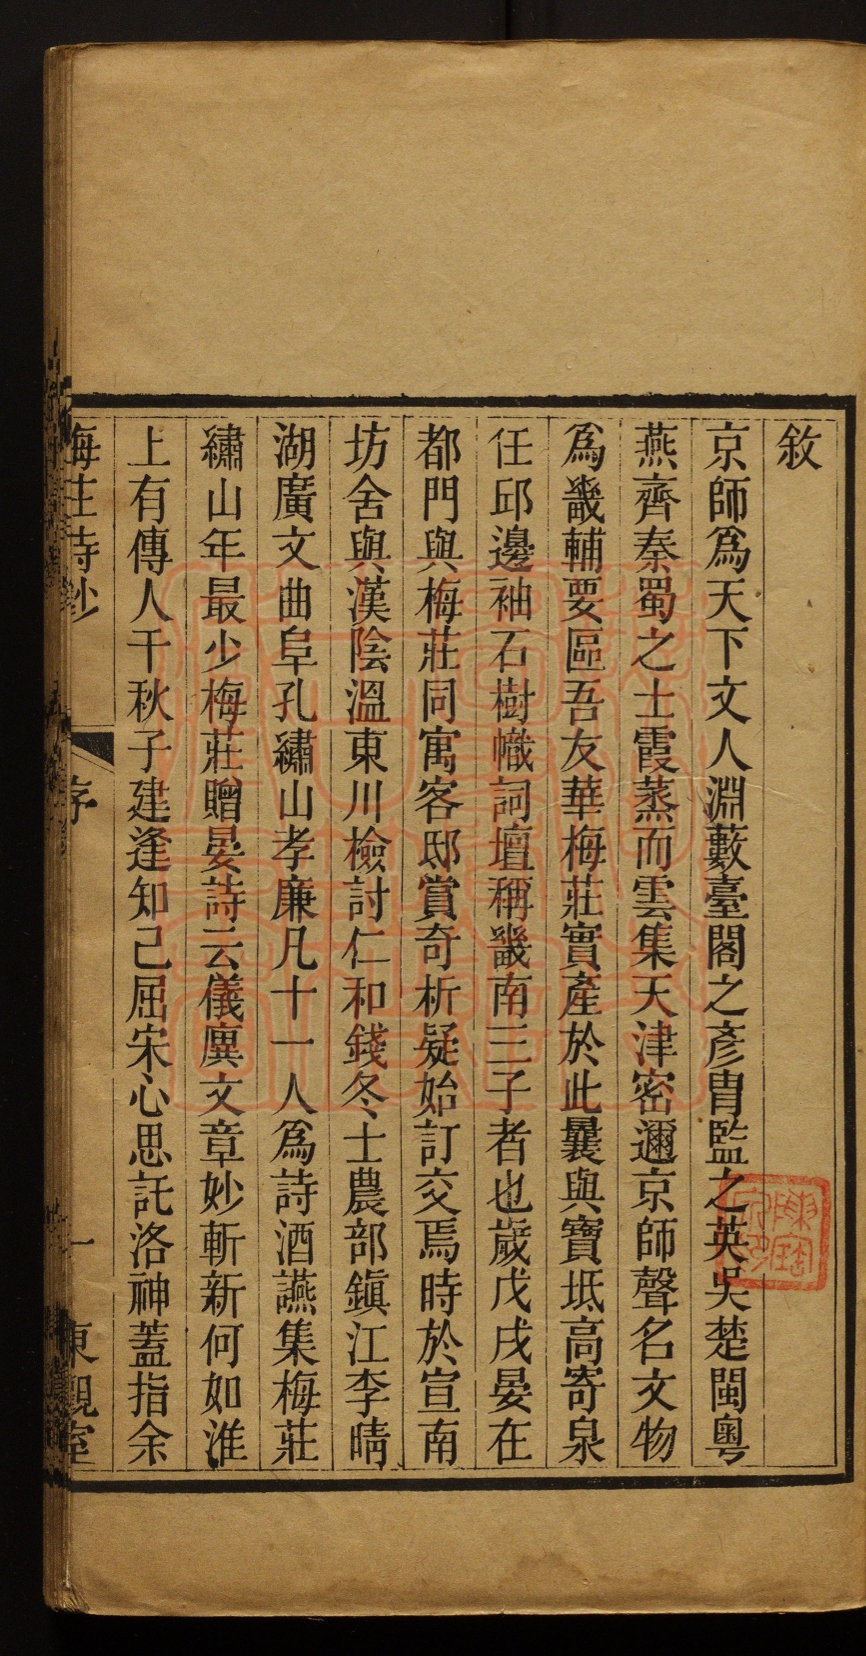 敘
京師爲天下文人淵藪臺閣之彥胄監之英吳楚閩粵
燕齊秦蜀之士霞蒸而雲集天津密邇京師聲名文物
爲畿輔要區吾友華梅莊實產於此曩與寶坻高寄泉
任邱邊袖石樹幟詞壇稱畿南三子者也歲戊戌晏在
都門與梅莊同寓客邸賞奇析疑始訂交焉時於宣南
坊舍與漢陰溫東川檢討仁和錢冬士農部鎮江李晴
湖廣文曲阜孔繡山孝廉凡十一人爲詩酒讌集梅莊
繡山年最少梅莊贈晏詩云儀廙文章妙斬新何如淮
上有傳人千秋子建逢知己屈宋心思託洛神蓋指余
梅莊詩鈔
序
一
東觀室